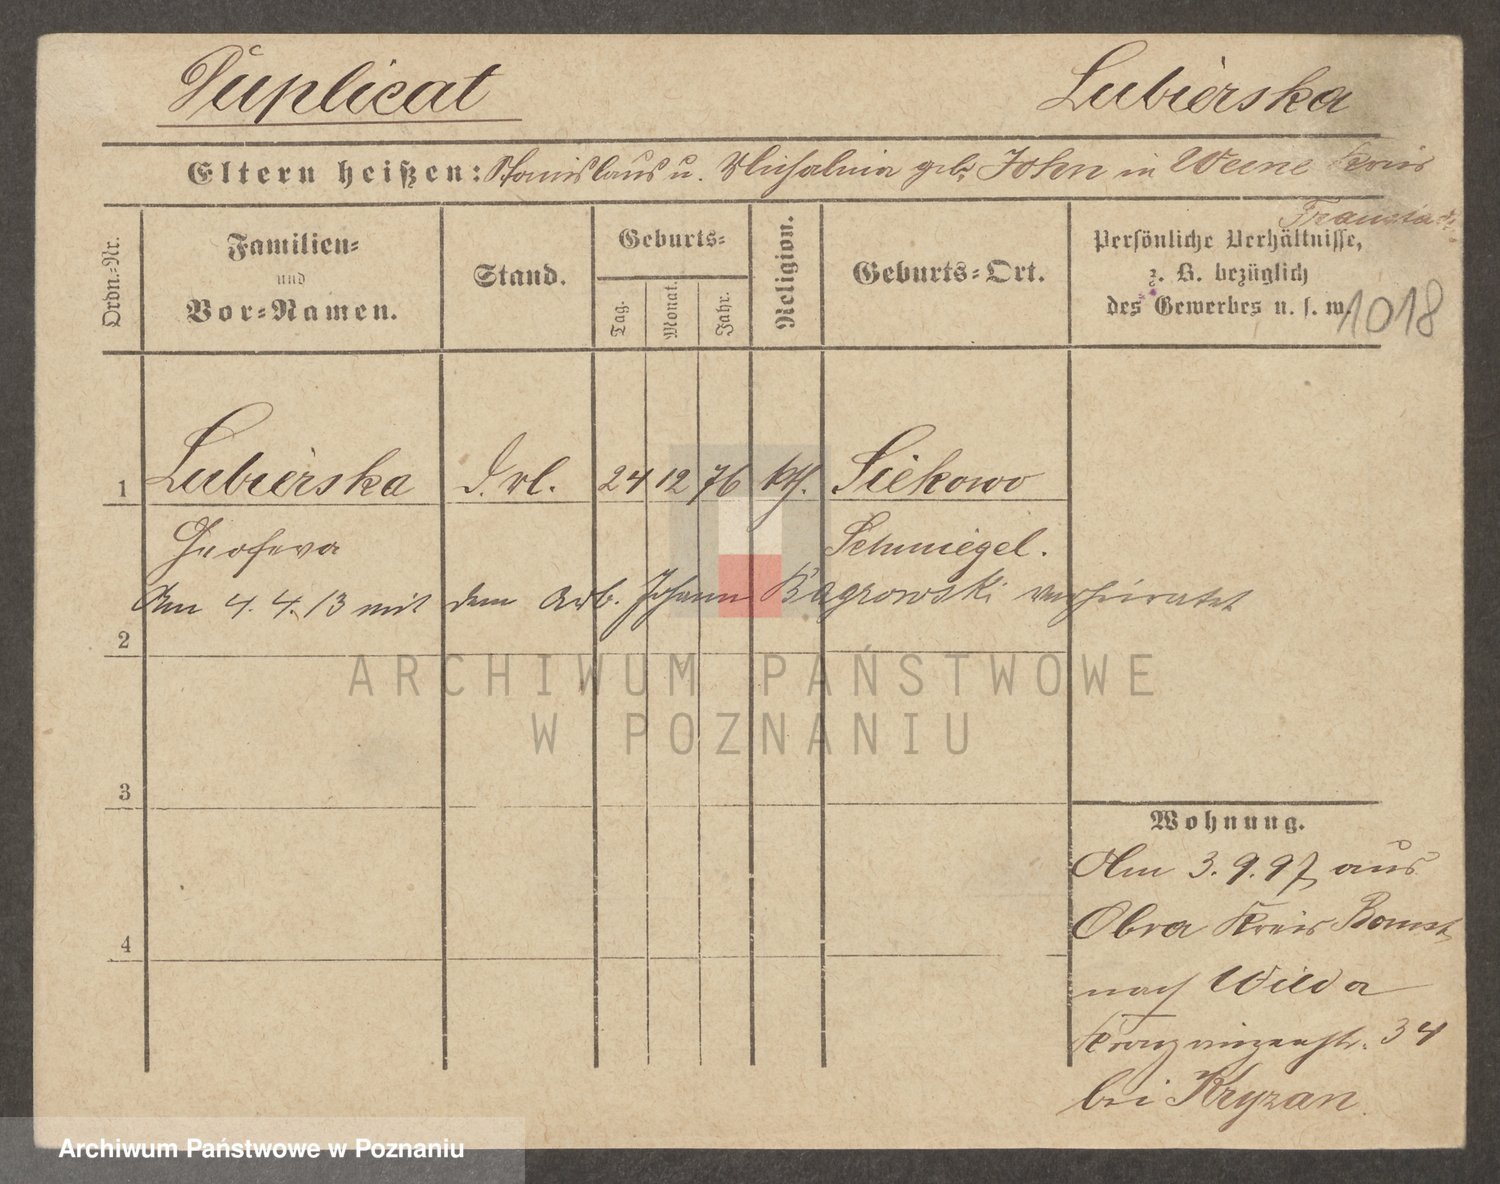 Duplicat
Lubierska
Eltern heißen: Stanislaus u. Michalina geb. John in Weine Kreis
Fraustadt
Ordn.-Nr.
Familien-
und
Vor-Namen.
Stand.
Geburts-
Tag.
Monat.
Jahr.
Religion.
Geburts-Ort.
Persönliche Verhältnisse,
z. B. bezüglich
des Gewerbes u. s. w.
1018
1 Lubierska d. vl. 24 12 76 kth. Siekowo
Schmiegel.
Am 4. 4. 13 mit dem Arb. Johann Bagrowski verheiratet
2
3
4
Wohnung.
Am 3. 9. 97 aus
Obra Kreis Bomst
nach Wilda
Kronprinzenstr. 34
bei Kryzan
ARCHIWUM PAŃSTWOWE
W POZNANIU
Archiwum Państwowe w Poznaniu